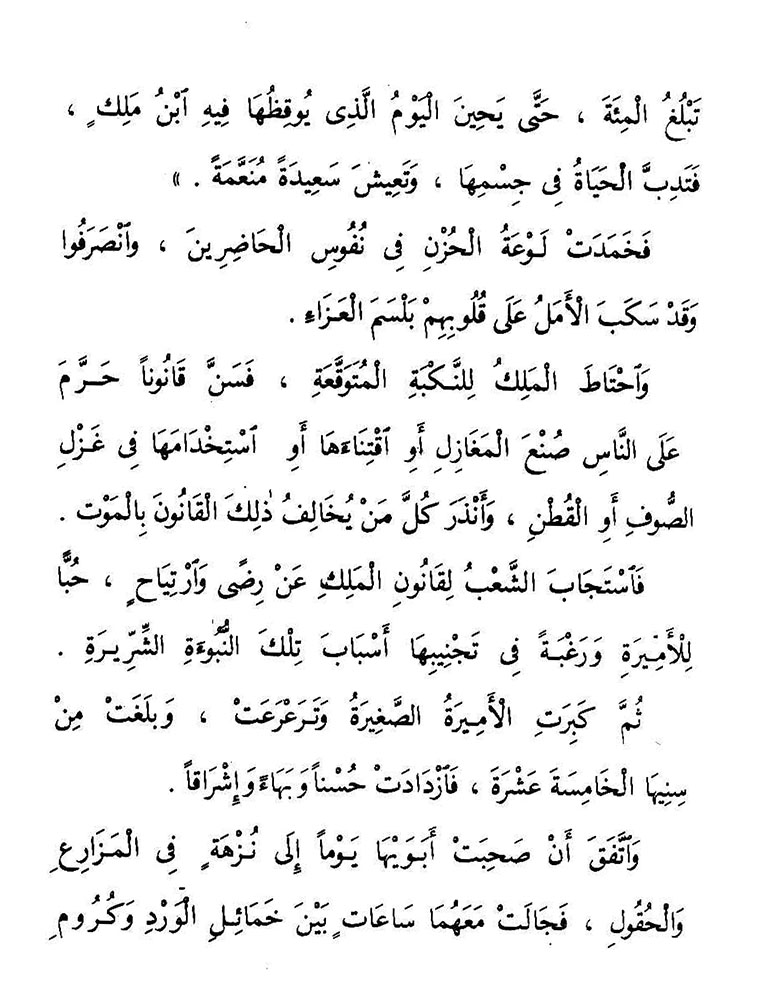 تَبْلُغُ الْمِئَةَ ، حَتَّى يَحِينَ الْيَوْمُ الَّذِى يُوقِظُهَا فِيهِ ٱبْنُ مَلِكٍ ،
فَتَدِبَّ الْحَيَاةُ فِى جِسْمِهَا ، وَتَعِيشَ سَعِيدَةً مُنَعَّمَةً . »
فَخَمَدَتْ لَوْعَةُ الْحُزْنِ فِى نُفُوسِ الْحَاضِرِينَ ، وٱنْصَرَفُوا
وَقَدْ سَكَبَ الْأَمَلُ عَلَى قُلُوبِهِمْ بَلْسَمَ الْعَزَاءِ .
وَٱحْتَاطَ الْمَلِكُ لِلنَّكْبَةِ الْمُتَوَقَّعَةِ ، فَسَنَّ قَانُوناً حَرَّمَ
عَلَى النَّاسِ صُنْعَ الْمَغَازِلِ أَوِ ٱقْتِنَاءَهَا أَوِ ٱسْتِخْدَامَهَا فِى غَزْلِ
الصُّوفِ أَوِ الْقُطْنِ ، وَأَنْذَرَ كُلَّ مَنْ يُخَالِفُ ذٰلِكَ الْقَانُونَ بِالْمَوْت .
فَٱسْتَجَابَ الشَّعْبُ لِقَانُونِ الْمَلِكِ عَنْ رِضًى وَٱرْتِيَاحٍ ، حُبًّا
لِلْأَمِيرَةِ وَرَغْبَةً فِى تَجْنِيبِهَا أَسْبَابَ تِلْكَ النُّبُوءَةِ الشِّرِّيرَةِ .
ثُمَّ كَبِرَتِ الْأَمِيرَةُ الصَّغِيرَةُ وَتَرَعْرَعَتْ ، وَبلَغَتْ مِنْ
سِنِيهَا الْخَامِسَةَ عَشْرَةَ ، فَٱزْدَادَتْ حُسْناً وَبَهَاءً وَإِشْرَاقاً .
وَٱتَّفَقَ أَنْ صَحِبَتْ أَبَوَيْهَا يَوْماً إِلَى نُزْهَةٍ فِى الْمَزَارِعِ
وَالْحُقُولِ ، فَجَالَتْ مَعَهُمَا سَاعَاتٍ بَيْنَ خَمَائِلِ الْوَرْدِ وَكُرُومِ